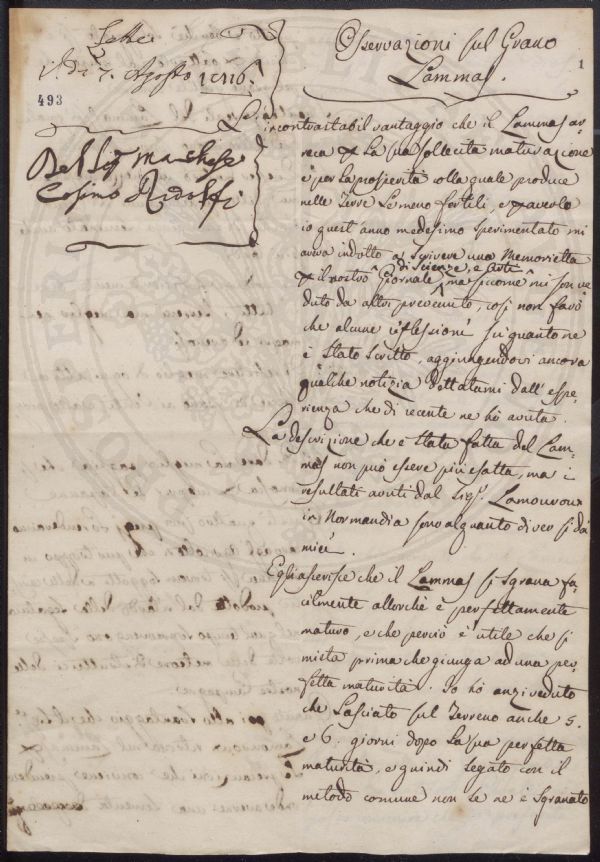 Letta
il dì 7. Agosto 1816.
493
Del Sig. Marchese
Cosimo Ridolfi
1
Osservazioni sul Grano
Lammas.
incontrastabil vantaggio che il Lammas ar-
reca la sua sollecita maturazione
e per la prosperità colla quale produce
nelle Terre le meno fertili, e averlo
io quest'anno medesimo sperimentato mi
aveva indotto a scrivere una Memorietta
il nostro Giornale di Scienze, e Arti ma siccome mi son ve
duto da altri prevenuto, così non farò
che alcune riflessioni su quanto ne
è stato scritto, aggiungendovi ancora
qualche notizia dettatami dall'espe-
rienza che di recente ne hò avuta.
La descrizione che è stata fatta del Lam-
mas non può essere più esatta, ma i
resultati avuti dal Sigr. Lamouroux
in Normandia sono alquanto diversi da
miei.
Egli asserisce che il Lammas si sgrana fa-
cilmente allorchè è perfettamente
maturo, e che perciò è utile che si
mieta prima che giunga ad una per-
fetta maturità. Io hò anzi veduto
che lasciato sul Terreno anche 5.
e 6. giorni dopo la sua perfetta
maturità, e quindi segato con il
metodo comune non se ne è sgranato